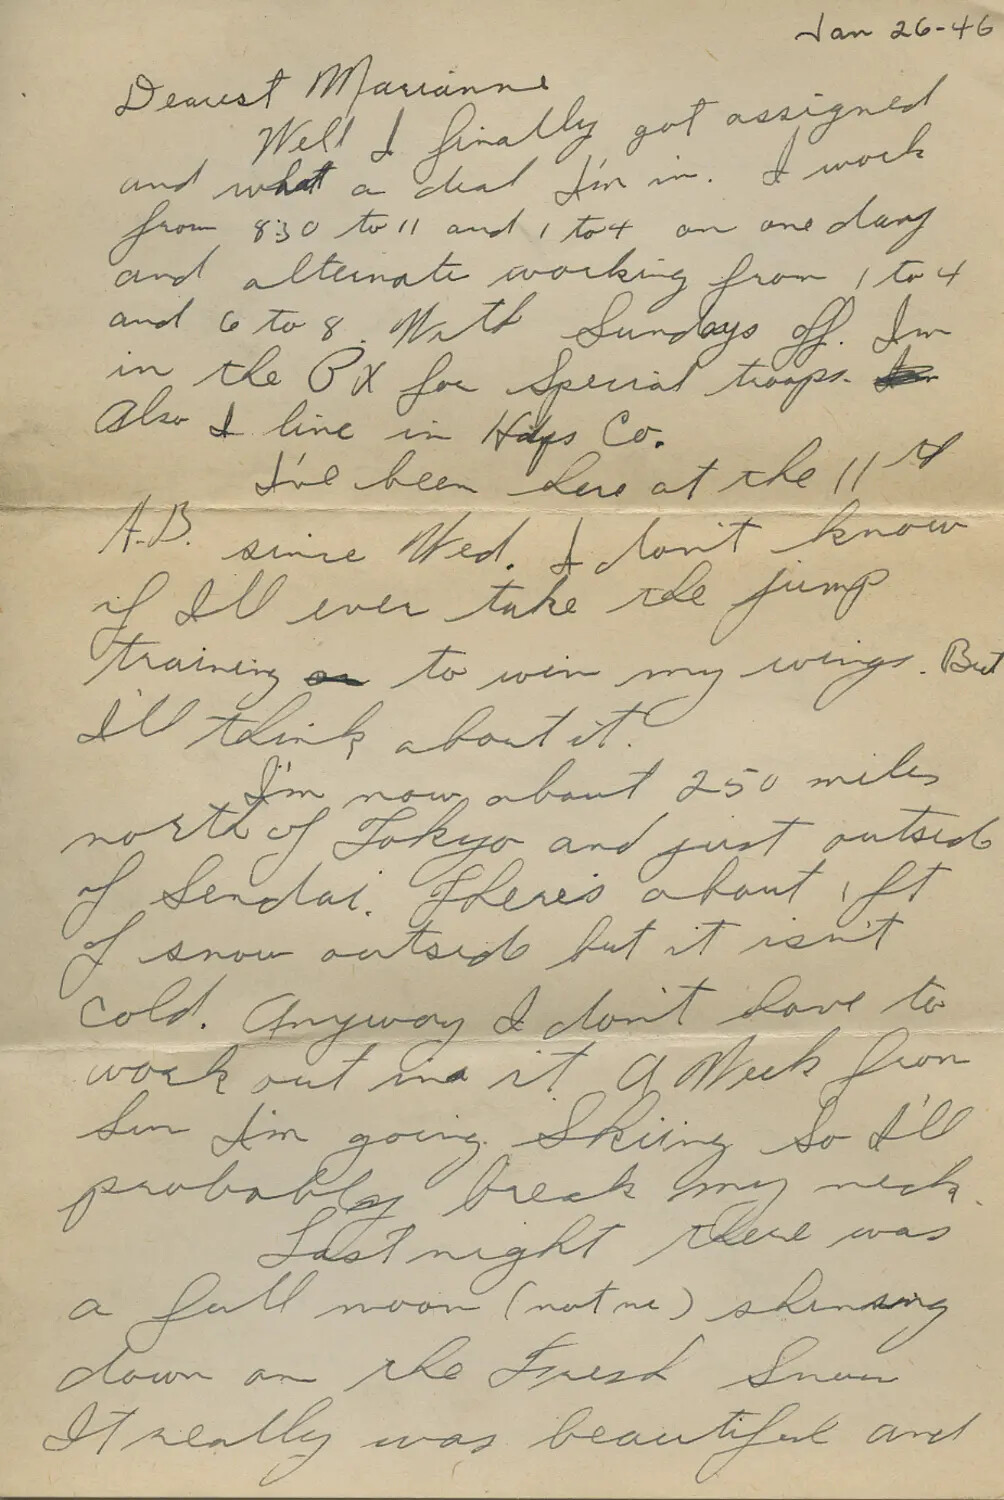 Jan 26-46
Dearest Marianne
Well I finally got assigned
and what a deal I'm in. I work
from 830 to 11 and 1 to 4 on one day
and alternate working from 1 to 4
and 6 to 8. With Sundays off. I'm
in the PX for Special troops.
Also I live in Hdqs Co.
I've been here at the 11th
A.B. since Wed. I don't know
if I'll ever take the jump
training to win my wings. But
I'll think about it.
I'm now about 250 miles
north of Tokyo and just outside
of Sendai. There's about 1 ft
of snow outside but it isn't
cold. Anyway I don't have to
work out in it A Week from
Sun I'm going Skiing So I'll
probably break my neck.
Last night there was
a full moon (not me) shinning
down on the Fresh Snow
It really was beautiful and